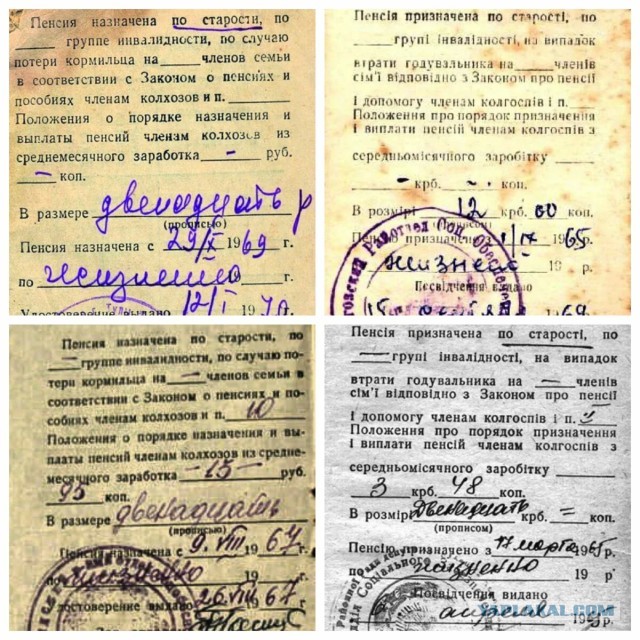 Пенсия назначена по старости, по
группе инвалидности, по случаю
потери кормильца на членов семьи
в соответствии с Законом о пенсиях и
пособиях членам колхозов и п.
Положения о порядке назначения и
выплаты пенсий членам колхозов из
среднемесячного заработка - руб.
- коп.
В размере двенадцать р
(прописью)
Пенсия назначена с 29/IX 1969 г.
по жизненно г.
Удостоверение выдано 12/I 1970.
Пенсія призначена по старості, по
групі інвалідності, на випадок
втрати годувальника на членів
сім'ї відповідно з Законом про пенсії
і допомогу членам колгоспів і п.
Положення про порядок призначення
і виплати пенсій членам колгоспів з
середньомісячного заробітку
- крб. - коп.
В розмірі 12 крб. 00 коп.
(прописом)
Пенсію призначено 1/IX 1965 р.
жизнено 19 р.
Посвідчення видано
Пенсия назначена по старости, по
группе инвалидности, по случаю по-
тери кормильца на — членов семьи в
соответствии с Законом о пенсиях и по-
собиях членам колхозов и п. 10
Положения о порядке назначения и вы-
платы пенсий членам колхозов из средне-
месячного заработка — 15 — руб.
95 коп.
В размере двенадцать
(прописью)
Пенсия назначена с 9.VIII 1967 г.
по жизненно 19 г.
достоверение выдано 1967
Пенсія призначена по старості, по
— групі інвалідності, на випадок
втрати годувальника на — членів
сім'ї відповідно з Законом про пенсії
і допомогу членам колгоспів і п.
Положення про порядок призначення
і виплати пенсій членам колгоспів з
середньомісячного заробітку
3 крб. 48 коп.
В розмірі Двенадцать крб. = коп.
(прописом)
Пенсію призначено з 17 марта 1965 р.
по жизненно 19 р
Посвідчення видано
YAPLAKAL.COM